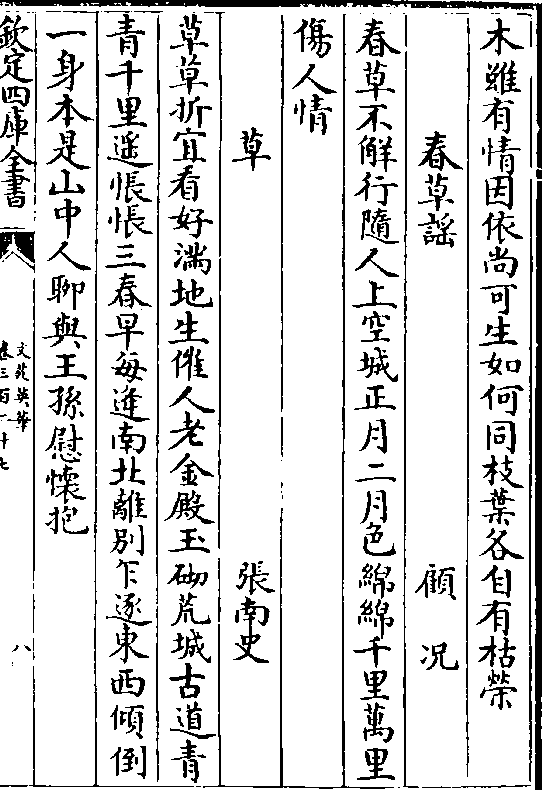 木雖有情因依尚可生如何同枝葉各自有枯榮
春草謡　顧况
春草不解行隨人上空城正月二月色綿綿千里萬里
傷人情
草　張南史
草草折宜看好滿地生催人老金殿玉砌荒城古道青
青千里遥悵悵三春早每逢南北離別乍逐東西傾倒
一身本是山中人聊與王孫慰懷抱
欽定四庫全書
文苑英華
卷三百二十七
八